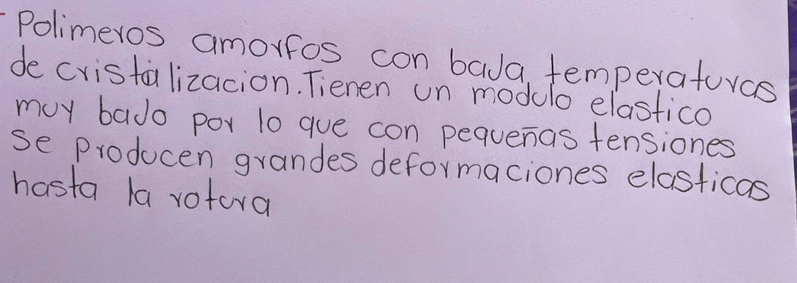 - Polimeros amorfos con baja temperaturas
de cristalizacion. Tienen un modulo elastico
muy bajo por lo que con pequeñas tensiones
se producen grandes deformaciones elasticas
hasta la rotura